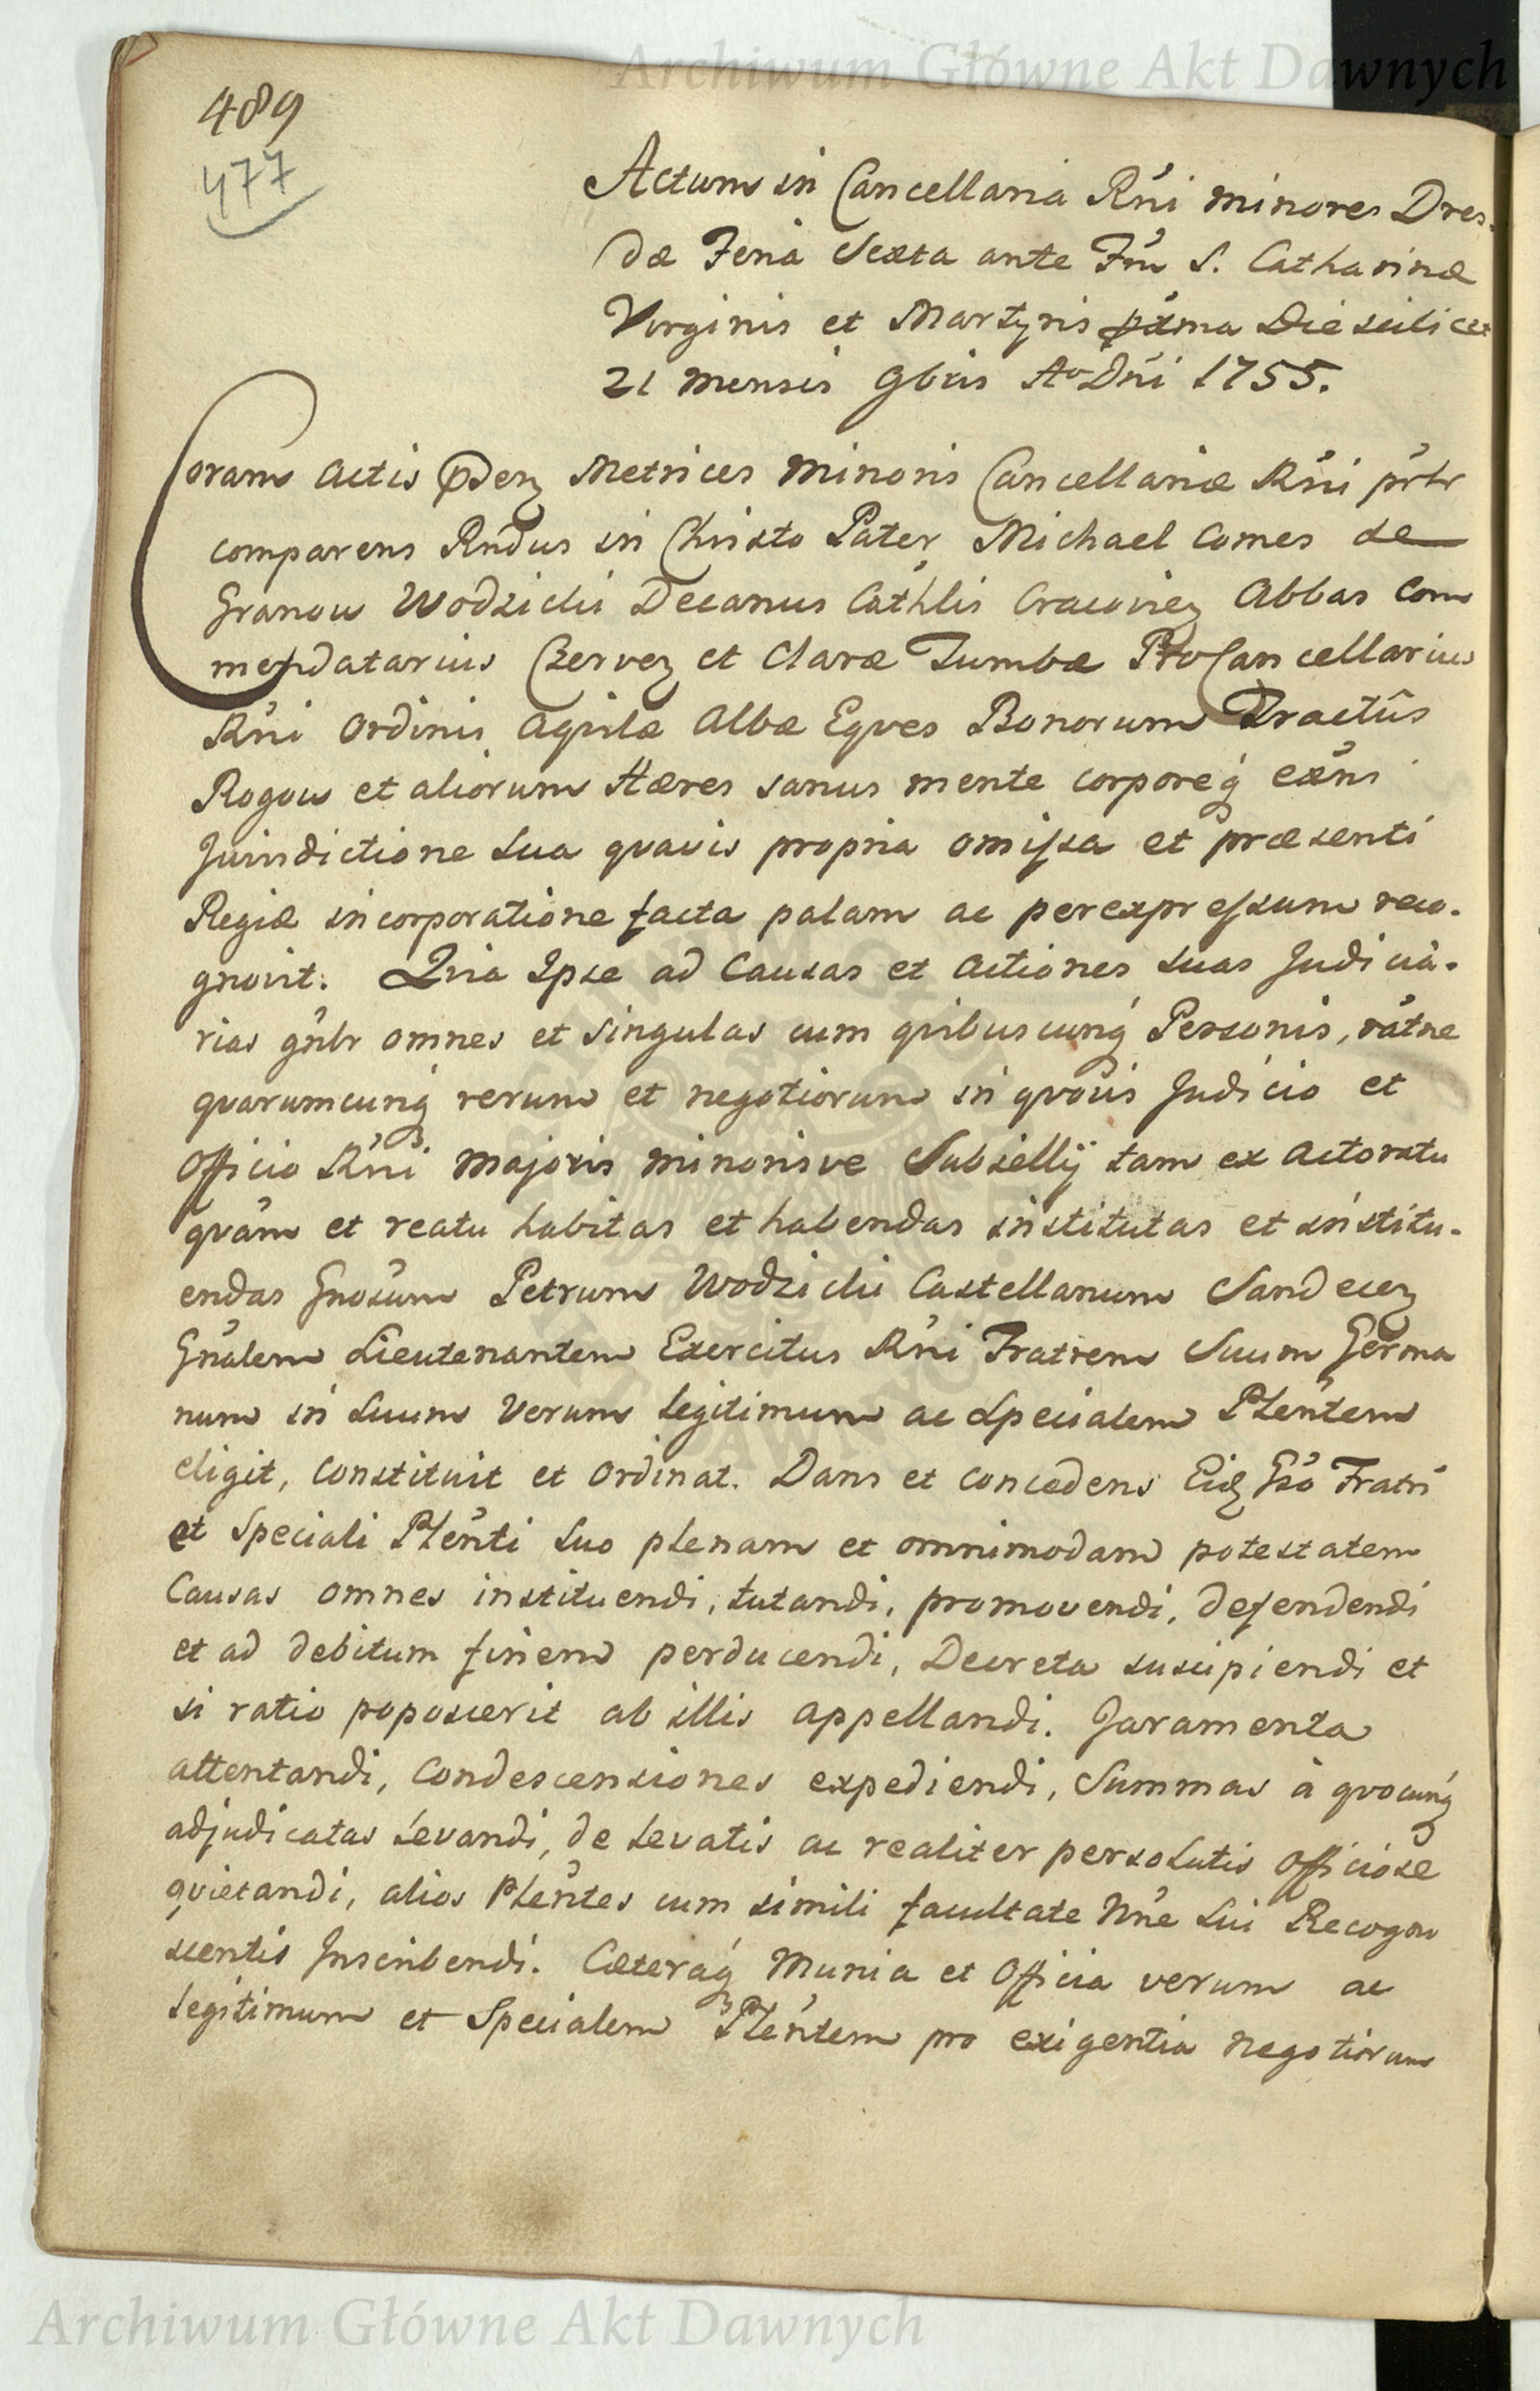 Archiwum Główne Akt Dawnych
489
477
Actum in Cancellaria Rńi minores Dres-
dæ Feria Sexta ante Fm̃ S. Catharinæ
Virginis et Martyris pxma Die scilicet
21 mensis 9bris Ao Dńi 1755.
Coram Actis Metrices minoris Cancellariæ Rńi prtr
comparens Rndus in Christo Pater Michael Comes de
Granow Wodzicki Decanus Cathlis Cracovień Abbas Com
mendatarius Czerven et Claræ Tumbæ ProCancellarius
Rńi Ordinis Aqvilæ Albæ Eqves Bonorum Tractûs
Rogow et aliorum Hæres sanus mente corporeq́ exńs
Jurisdictione sua qvavis propria omissa et præsenti
Regiæ incorporatione facta palam ac per expressum reco-
gnovit. Qvia Ipse ad Causas et Actiones suas Judicia-
rias gńlr omnes et singulas cum qvibuscunq́ Personis, rátne
qvarumcunq́ rerum et negotiorum in qvovis Judicio et
Officio Rńi majoris minorisve Subsellij tam ex Actoratu
qvám et reatu habitas et habendas institutas et institu-
endas Gnosum Petrum Wodzicki Castellanum Sandecen
Gńalem Lieutenantem Exercitus Rńi Fratrem Suum Germa
num in Suum Verum legitimum ac specialem Pleńtem
eligit, constituit et ordinat. Dans et concedens Eid Gso Fratri
et Speciali Pleńti suo plenam et omnimodam potestatem
Causas omnes instituendi, tutandi, promovendi, defendendi
et ad debitum finem perducendi, Decreta suscipiendi et
si ratio poposcerit ab illis appellandi. Juramenta
attentandi, Condescensiones expediendi, Summas à qvocunq́
adjudicatas levandi, de levatis ac realiter persolutis officiose
qvietandi, alios Pleńtes cum simili facultate Nne sui Recogno
scentis Inscribendi. Cæteraq́ Munia et Officia verum ac
legitimum et Specialem Pleńtem pro exigentia negotiorum
Archiwum Główne Akt Dawnych